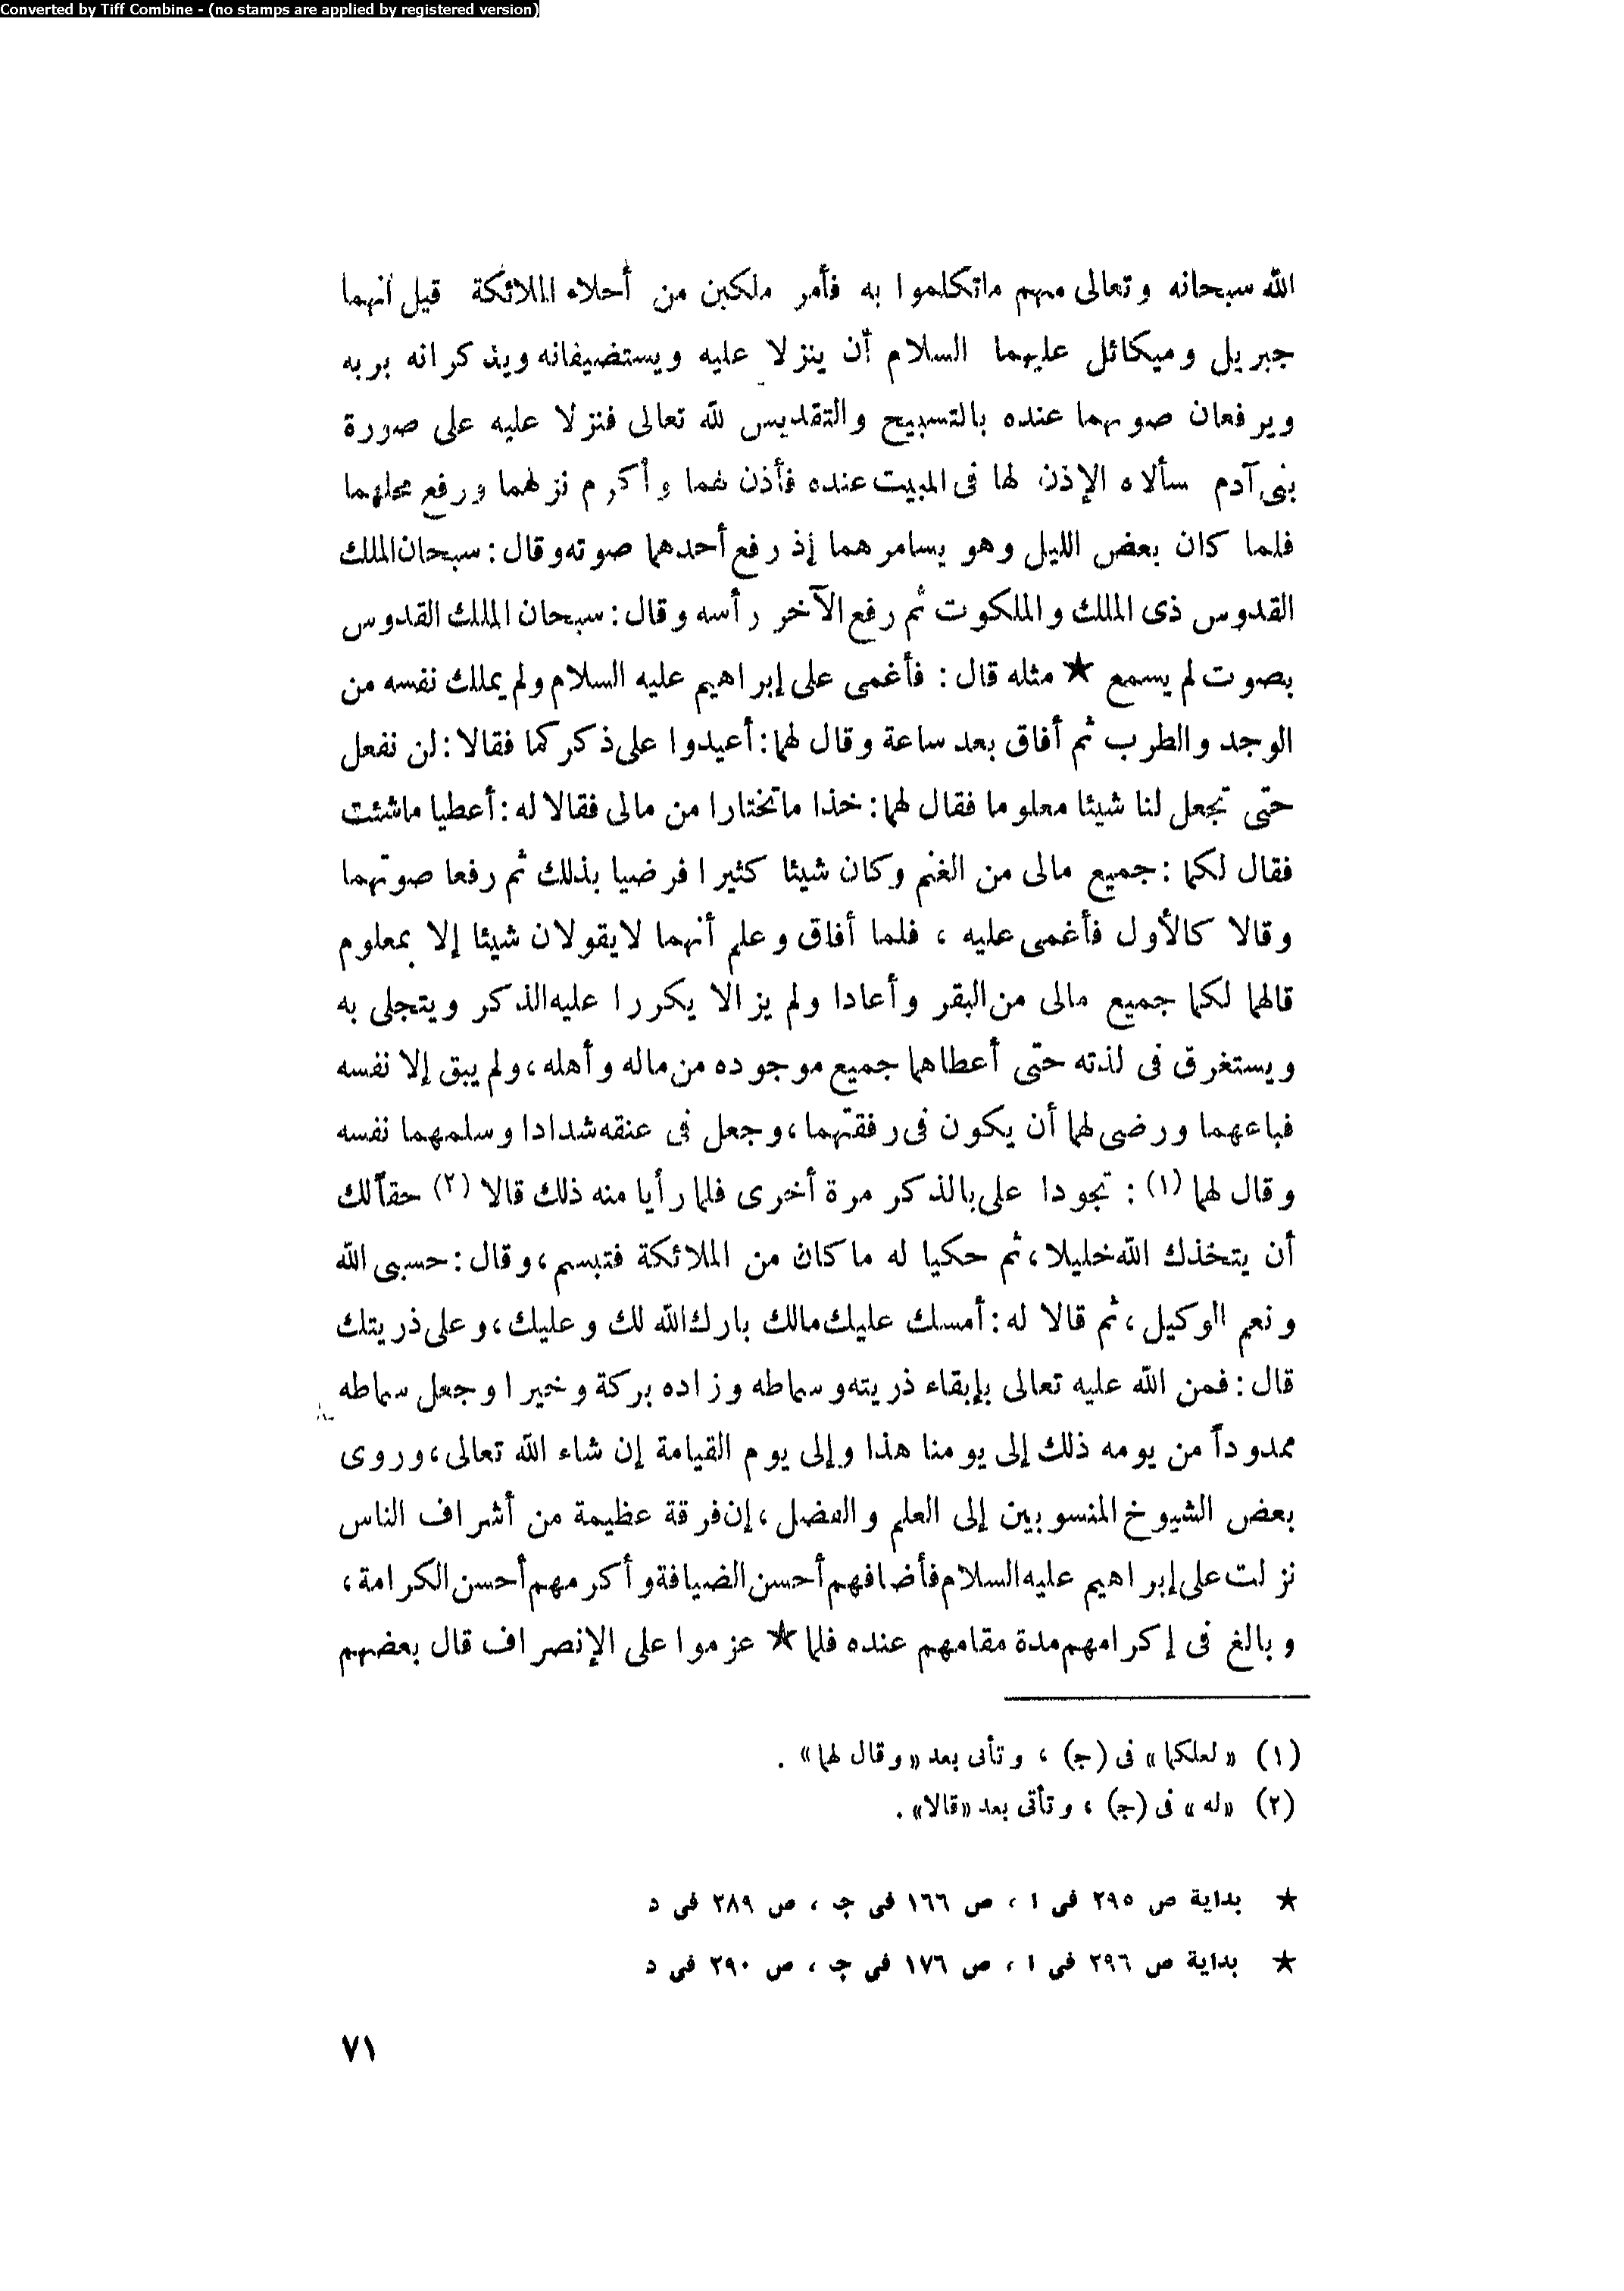 Converted by Tiff Combine - (no stamps are applied by registered version)
الله سبحانه وتعالى منهم ماتكلموا به فأمر ملكين من أجلاء الملائكة قيل أنهما
جبريل وميكائل عليهما السلام أن ينزلا عليه ويستضيفانه ويذكرانه بربه
ويرفعان صوتهما عنده بالتسبيح والتقديس لله تعالى فنزلا عليه على صورة
بنى آدم سألاه الإذن لها فى المبيت عنده فأذن لهما وأكرم نزلهما ورفع محلهما
فلما كان بعض الليل وهو يسامرهما إذ رفع أحدهما صوته وقال: سبحان الملك
القدوس ذى الملك والملكوت ثم رفع الآخر رأسه وقال: سبحان الملك القدوس
بصوت لم يسمع ★ مثله قال: فأغمى على إبراهيم عليه السلام ولم يملك نفسه من
الوجد والطرب ثم أفاق بعد ساعة وقال لهما: أعيدوا على ذكركما فقالا: لن نفعل
حتى تجعل لنا شيئا معلوما فقال لهما: خذا ماتختارا من مالى فقالا له: أعطيا ماشئت
فقال لكما: جميع مالى من الغنم وكان شيئا كثيرا فرضيا بذلك ثم رفعا صوتهما
وقالا كالأول فأغمى عليه، فلما أفاق وعلم أنهما لايقولان شيئا إلا بمعلوم
قالهما لكما جميع مالى من البقر وأعادا ولم يزالا يكررا عليه الذكر ويتجلى به
ويستغرق فى لذته حتى أعطاهما جميع موجوده من ماله وأهله، ولم يبق إلا نفسه
فباعهما ورضى لهما أن يكون فى رفقتهما، وجعل فى عنقه شدادا وسلمهما نفسه
وقال لهما (١): تجودا على بالذكر مرة أخرى فلما رأيا منه ذلك قالا (٢) حقاً لك
أن يتخذك الله خليلا، ثم حكيا له ماكان من الملائكة فتبسم، وقال: حسبى الله
ونعم الوكيل، ثم قالا له: أمسك عليك مالك بارك الله لك وعليك، وعلى ذريتك
قال: فمن الله عليه تعالى بإبقاء ذريته وسماطه وزاده بركة وخيرا وجعل سماطه
ممدوداً من يومه ذلك إلى يومنا هذا وإلى يوم القيامة إن شاء الله تعالى، وروى
بعض الشيوخ المنسوبين إلى العلم والفضل، إن فرقة عظيمة من أشراف الناس
نزلت على إبراهيم عليه السلام فأضافهم أحسن الضيافة وأكرمهم أحسن الكرامة،
وبالغ فى إكرامهم مدة مقامهم عنده فلما ★ عزموا على الإنصراف قال بعضهم
(١) «لعلكما» فى (ج)، وتأتى بعد «وقال لهما».
(٢) «له» فى (ج)، وتأتى بعد «قالا».
★ بداية ص ٢٩٥ فى ا، ص ١٦٦ فى ج، ص ٢٨٩ فى د
★ بداية ص ٢٩٦ فى ا، ص ١٧٦ فى ج، ص ٢٩٠ فى د
٧١